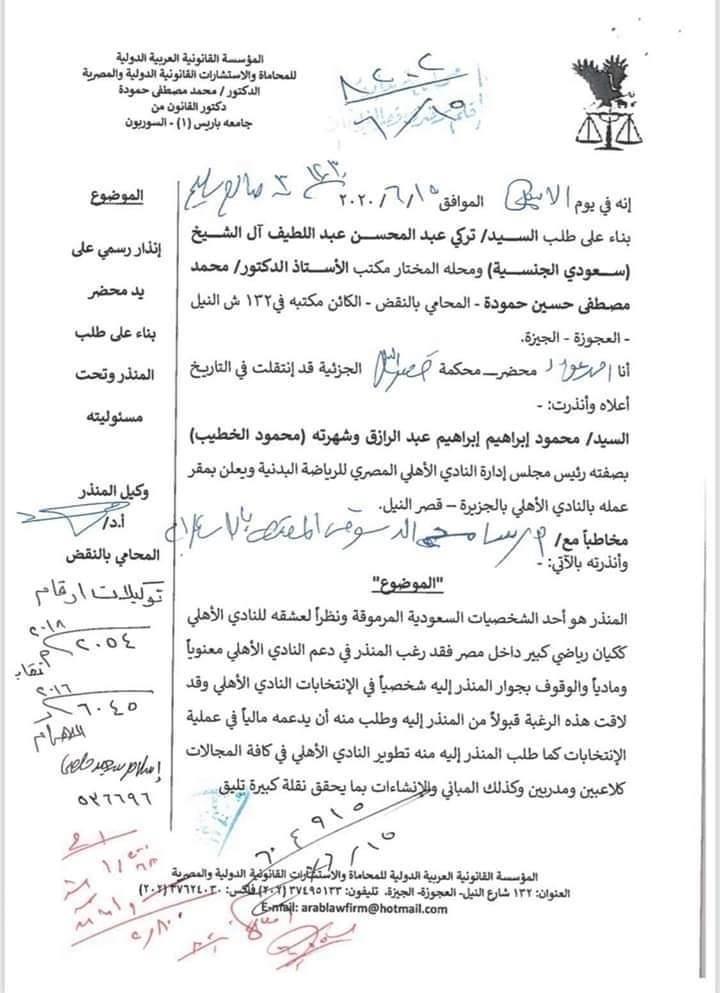 المؤسسة القانونية العربية الدولية
للمحاماة والاستشارات القانونية الدولية والمصرية
الدكتور / محمد مصطفى حمودة
دكتور القانون من
جامعه باريس (١) - السوربون
إنه في يوم الموافق ١٥/٦/٢٠٢٠
بناء على طلب السيد/ تركي عبد المحسن عبد اللطيف آل الشيخ
(سعودي الجنسية) ومحله المختار مكتب الأستاذ الدكتور/ محمد
مصطفى حسين حمودة - المحامي بالنقض - الكائن مكتبه في١٣٢ ش النيل
- العجوزة - الجيزة.
أنا محضر محكمة الجزئية قد إنتقلت في التاريخ
أعلاه وأنذرت: -
السيد/ محمود إبراهيم إبراهيم عبد الرازق وشهرته (محمود الخطيب)
بصفته رئيس مجلس إدارة النادي الأهلي المصري للرياضة البدنية ويعلن بمقر
عمله بالنادي الأهلي بالجزيرة – قصر النيل.
مخاطباً مع/
وأنذرته بالآتي: -
"الموضوع"
المنذر هو أحد الشخصيات السعودية المرموقة ونظراً لعشقه للنادي الأهلي
ككيان رياضي كبير داخل مصر فقد رغب المنذر في دعم النادي الأهلي معنوياً
ومادياً والوقوف بجوار المنذر إليه شخصياً في الإنتخابات النادي الأهلي وقد
لاقت هذه الرغبة قبولاً من المنذر إليه وطلب منه أن يدعمه مالياً في عملية
الإنتخابات كما طلب المنذر إليه منه تطوير النادي الأهلي في كافة المجالات
كلاعبين ومدربين وكذلك المباني والإنشاءات بما يحقق نقلة كبيرة تليق
الموضوع
إنذار رسمي على
يد محضر
بناء على طلب
المنذر وتحت
مسئوليته
وكيل المنذر
أ.د/
المحامي بالنقض
توكيلات ارقام
٢٠١٨
٢٠٥٤
٢٠١٦
٦٠٤٥
الاهرام
٥٣٦٦٩٦
٦٠٤٩١٥
١٥/٦
المؤسسة القانونية العربية الدولية للمحاماة والاستشارات القانونية الدولية والمصرية
العنوان: ١٣٢ شارع النيل- العجوزة- الجيزة. تليفون: ٣٧٤٩٥١٣٣ (٢٠٢) فاكس: ٣٧٦٢٤٠٣٠ (٢٠٢)
E-mail: arablawfirm@hotmail.com